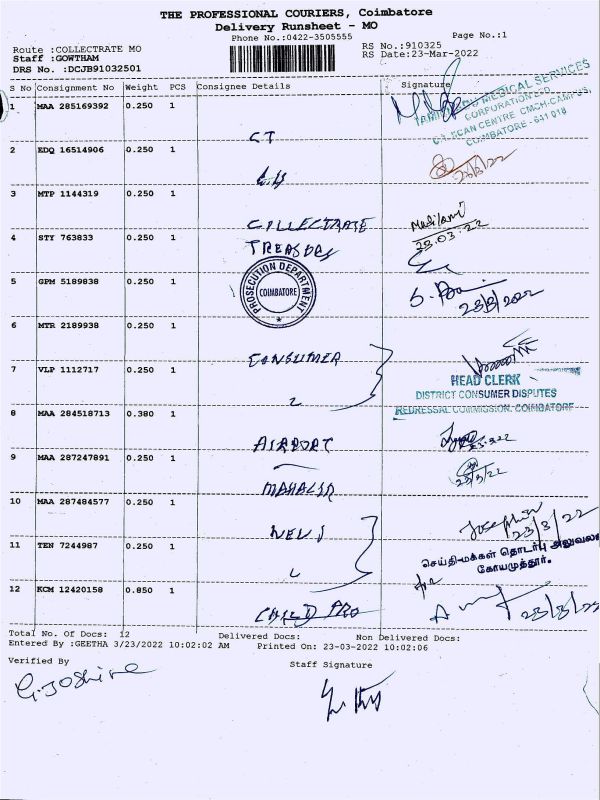 THE PROFESSIONAL COURIERS, Coimbatore
Delivery Runsheet - MO
Phone No.:0422-3505555
Page No.:1
Route :COLLECTRATE MO
RS No.:910325
Staff :GOWTHAM
RS Date:23-Mar-2022
DRS No. :DCJB91032501
S No Consignment No Weight PCS Consignee Details Signature
MAA 285169392 0.250 1
CT
TAMILNADU MEDICAL SERVICES
CORPORATION LTD
C.T. SCAN CENTRE CMCH-CAMPUS,
COIMBATORE - 641 018
2 EDQ 16514906 0.250 1
23/3/22
3 MTP 1144319 0.250 1
COLLECTRATE
23.03.22
4 STY 763833 0.250 1
TREASURY
5 GPM 5189838 0.250 1
PROSECUTION DEPARTMENT
COIMBATORE
23/3/2022
6 MTR 2189938 0.250 1
CONSUMER
7 VLP 1112717 0.250 1
HEAD CLERK
DISTRICT CONSUMER DISPUTES
REDRESSAL COMMISSION. COIMBATORE
8 MAA 284518713 0.380 1
AIRPORT
9 MAA 287247891 0.250 1
10 MAA 287484577 0.250 1
NEWS
23/3/22
11 TEN 7244987 0.250 1
செய்தி-மக்கள் தொடர்பு அலுவல
கோயமுத்தூர்.
12 KCM 12420158 0.850 1
CHILD PRO
23/3/22
Total No. Of Docs: 12 Delivered Docs: Non Delivered Docs:
Entered By :GEETHA 3/23/2022 10:02:02 AM Printed On: 23-03-2022 10:02:06
Verified By
Staff Signature